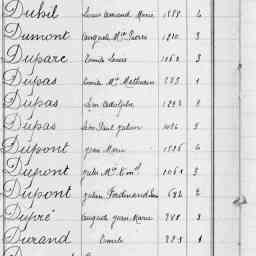 Dubil Louis Armand Marie 1888 6
Dumont Auguste Mie Pierre 1810 3
Duparc Emile Louis 1063 3
Dupas Emile Me Mathurin 283 1
Dupas Léon Adolphe 1293
Dupas Léon Paul Julien 1086 5
Dupont Jean Marie 6
Dupont Jules Me Emel 1061 3
Dupont Julien Ferdinand 2
Dupré Auguste Jean Marie 388 3
Durand Emile 383 1